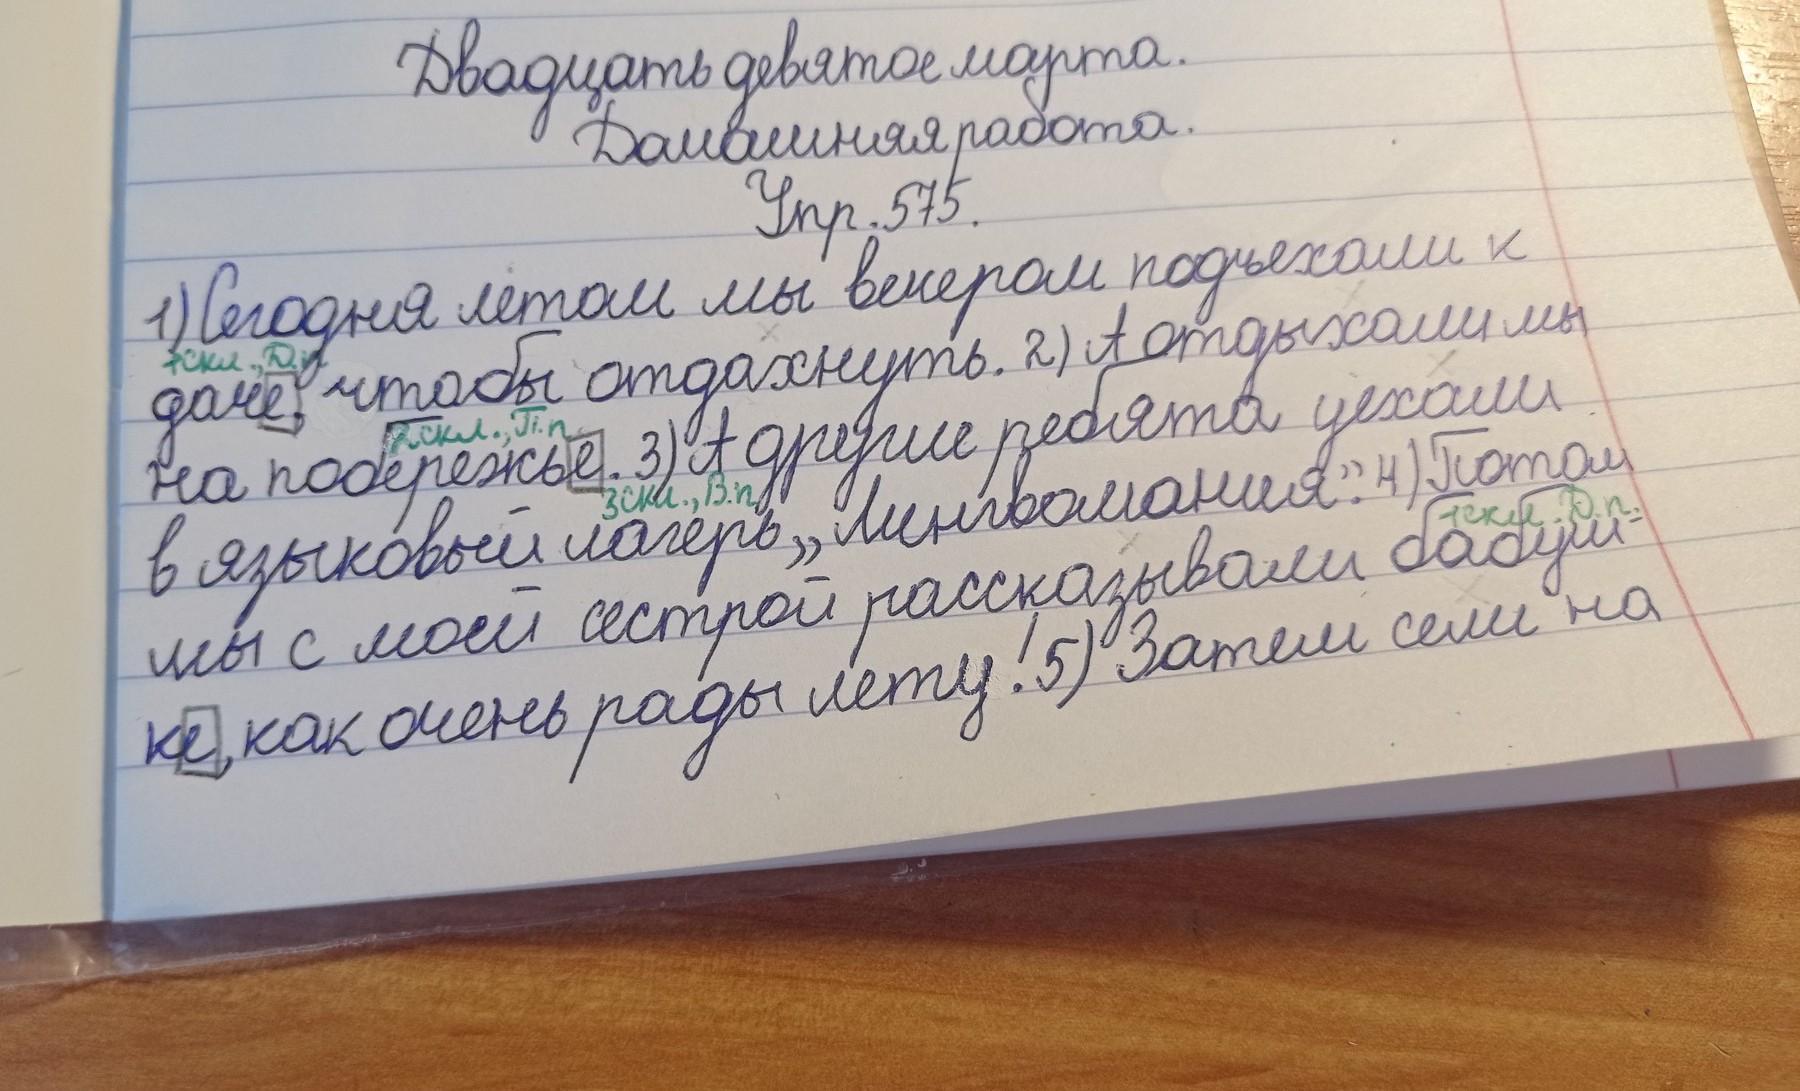 Двадцать девятое марта.
Домашняя работа.
Упр. 575.
1) Сегодня летом мы вечером подъехали к
1 скл., Д.п.
даче, чтобы отдахнуть. 2) А отдыхали мы
2 скл., П.п.
на побережье. 3) А другие ребята уехали
3 скл., В.п.
в языковый лагерь „Лингвомания”. 4) Потом
1 скл., Д.п.
мы с моей сестрой рассказывали бабуш-
ке, как очень рады лету! 5) Затем сели на